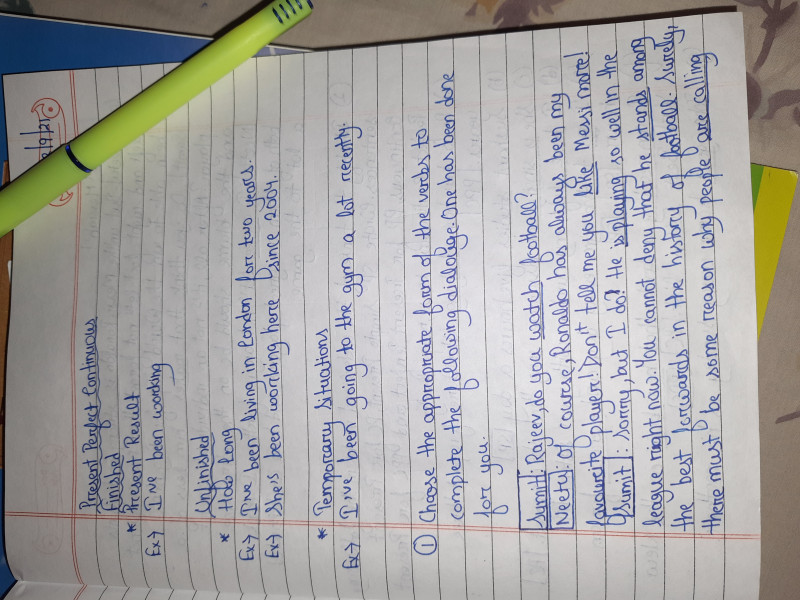 /9/21
Present Perfect Continuous
Finished
* Present Result
Ex→ I've been working
Unfinished
* How long
Ex→ I've been living in London for two years.
Ex→ She's been working here since 2004.
* Temporary Situations
Ex→ I've been going to the gym a lot recently.
① Choose the appropriate form of the verbs to
complete the following dialauge. One has been done
for you.
Sumit: Rajeev, do you watch football?
Neety: of course, Ronaldo has always been my
favourite player! Don't tell me you like Messi more!
Sumit: sorry, but I do! He is playing so well in the
league right now. You cannot deny that he stands among
the best forwards in the history of football. Surely,
there must be some reason why people are calling